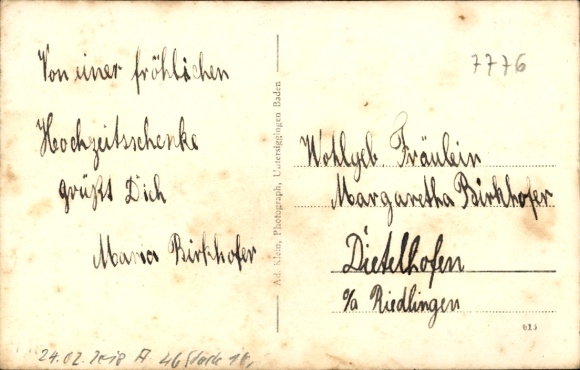 Von einer fröhlichen
Hochzeitsschenke
grüßt Dich
Maria Birkhofer
Ad. Klein, Photograph, Untersiggingen Baden
7776
Wohlgeb Fräulein
Margaretha Birkhofer
Dietelhofen
o/a Riedlingen
613
24.02.2018 A 46